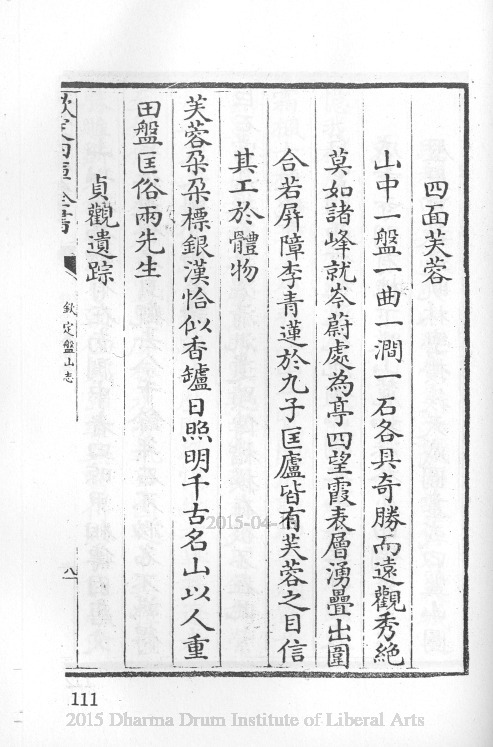 四面芙蓉
山中一盤一曲一澗一石各具奇勝而遠觀秀絶
莫如諸峰就岑蔚處為亭四望霞表層湧疊出圍
合若屏障李青蓮於九子匡廬皆有芙蓉之目信
其工於體物
芙蓉朶朶標銀漢恰似香罏日照明千古名山以人重
田盤匡俗兩先生
貞觀遺踪
欽定四庫全書
欽定盤山志
八
2015-04-1
111
2015 Dharma Drum Institute of Liberal Arts